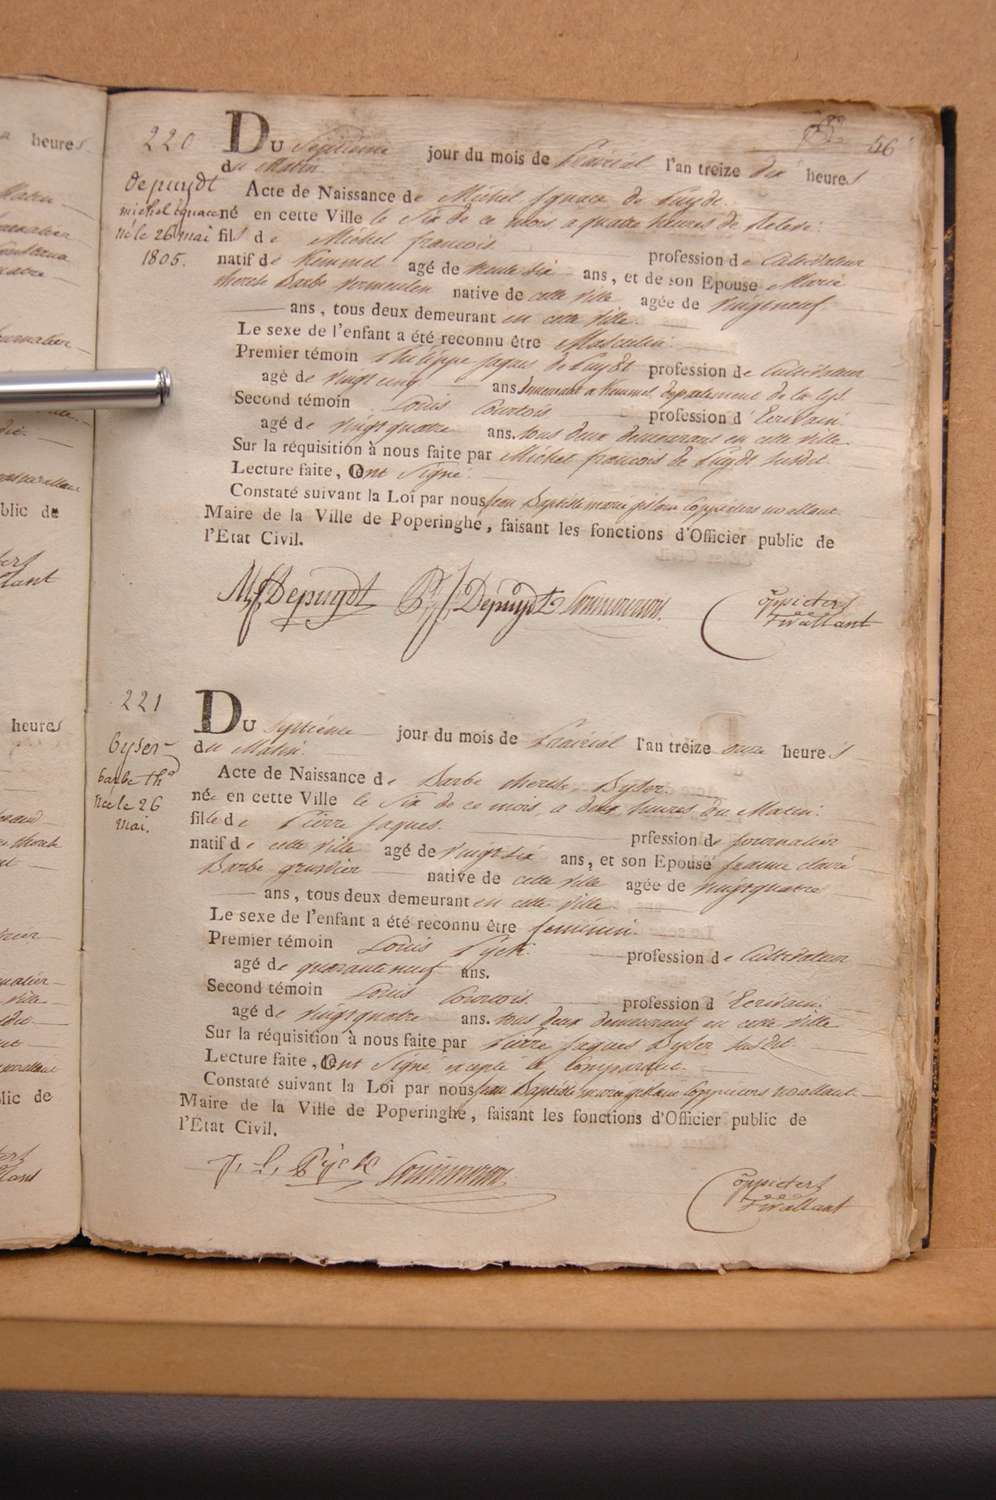 220
56
Du Septième jour du mois de Prairial l'an treize dix heures
du Matin
depuydt
michel ignace
né le 26 mai
1805.
Acte de Naissance de Michel Ignace de Puydt
né en cette Ville le Six de ce mois a quatre heures de Relevé.
fils de Michel francois profession de Cultivateur
natif de Kemmel agé de trente six ans, et de son Epouse Marie
therese Barbe Vermeulen native de cette ville agée de vingtneuf
ans, tous deux demeurant en cette ville.
Le sexe de l'enfant a été reconnu être Masculin.
Premier témoin Philippe Jaques de Puydt profession de Cultivateur
agé de vingt cinq ans. demeurant a Kemmel departement de la Lys.
Second témoin Louis Courtois profession d'Ecrivain.
agé de vingtquatre ans. tous deux demeurans en cette ville.
Sur la réquisition à nous faite par Michel francois de Puydt susdit.
Lecture faite, Ont Signé.
Constaté suivant la Loi par nous Jean Baptiste Coppieters wallant
Maire de la Ville de Poperinghe, faisant les fonctions d'Officier public de
l'État Civil.
MfDepuydt PjDepuydt Coppieters
Wallant
221
Du Septième jour du mois de Prairial l'an treize onze heures
du Matin.
Cyser
barbe th
née le 26
mai.
Acte de Naissance de Barbe therese Cyser.
née en cette Ville le Six de ce mois, a deux heures du Matin.
fille de Pierre Jaques. prfession de journalier
natif de cette ville agé de vingtsix ans, et son Epouse jeanne claire
Barbe native de cette ville agée de vingtquatre
ans, tous deux demeurant en cette ville.
Le sexe de l'enfant a été reconnu être feminin.
Premier témoin Louis Pyck. profession de Cultivateur
agé de quaranteneuf ans.
Second témoin Louis Courtois. profession d'Ecrivain.
agé de vingtquatre ans. tous deux demeurant en cette ville
Sur la réquisition à nous faite par Pierre Jaques Cyser susdit.
Lecture faite, Ont Signé excepté le comparant.
Constaté suivant la Loi par nous Jean Baptiste Coppieters wallant
Maire de la Ville de Poperinghe, faisant les fonctions d'Officier public de
l'État Civil.
J. L. Pyck Coppieters
Wallant